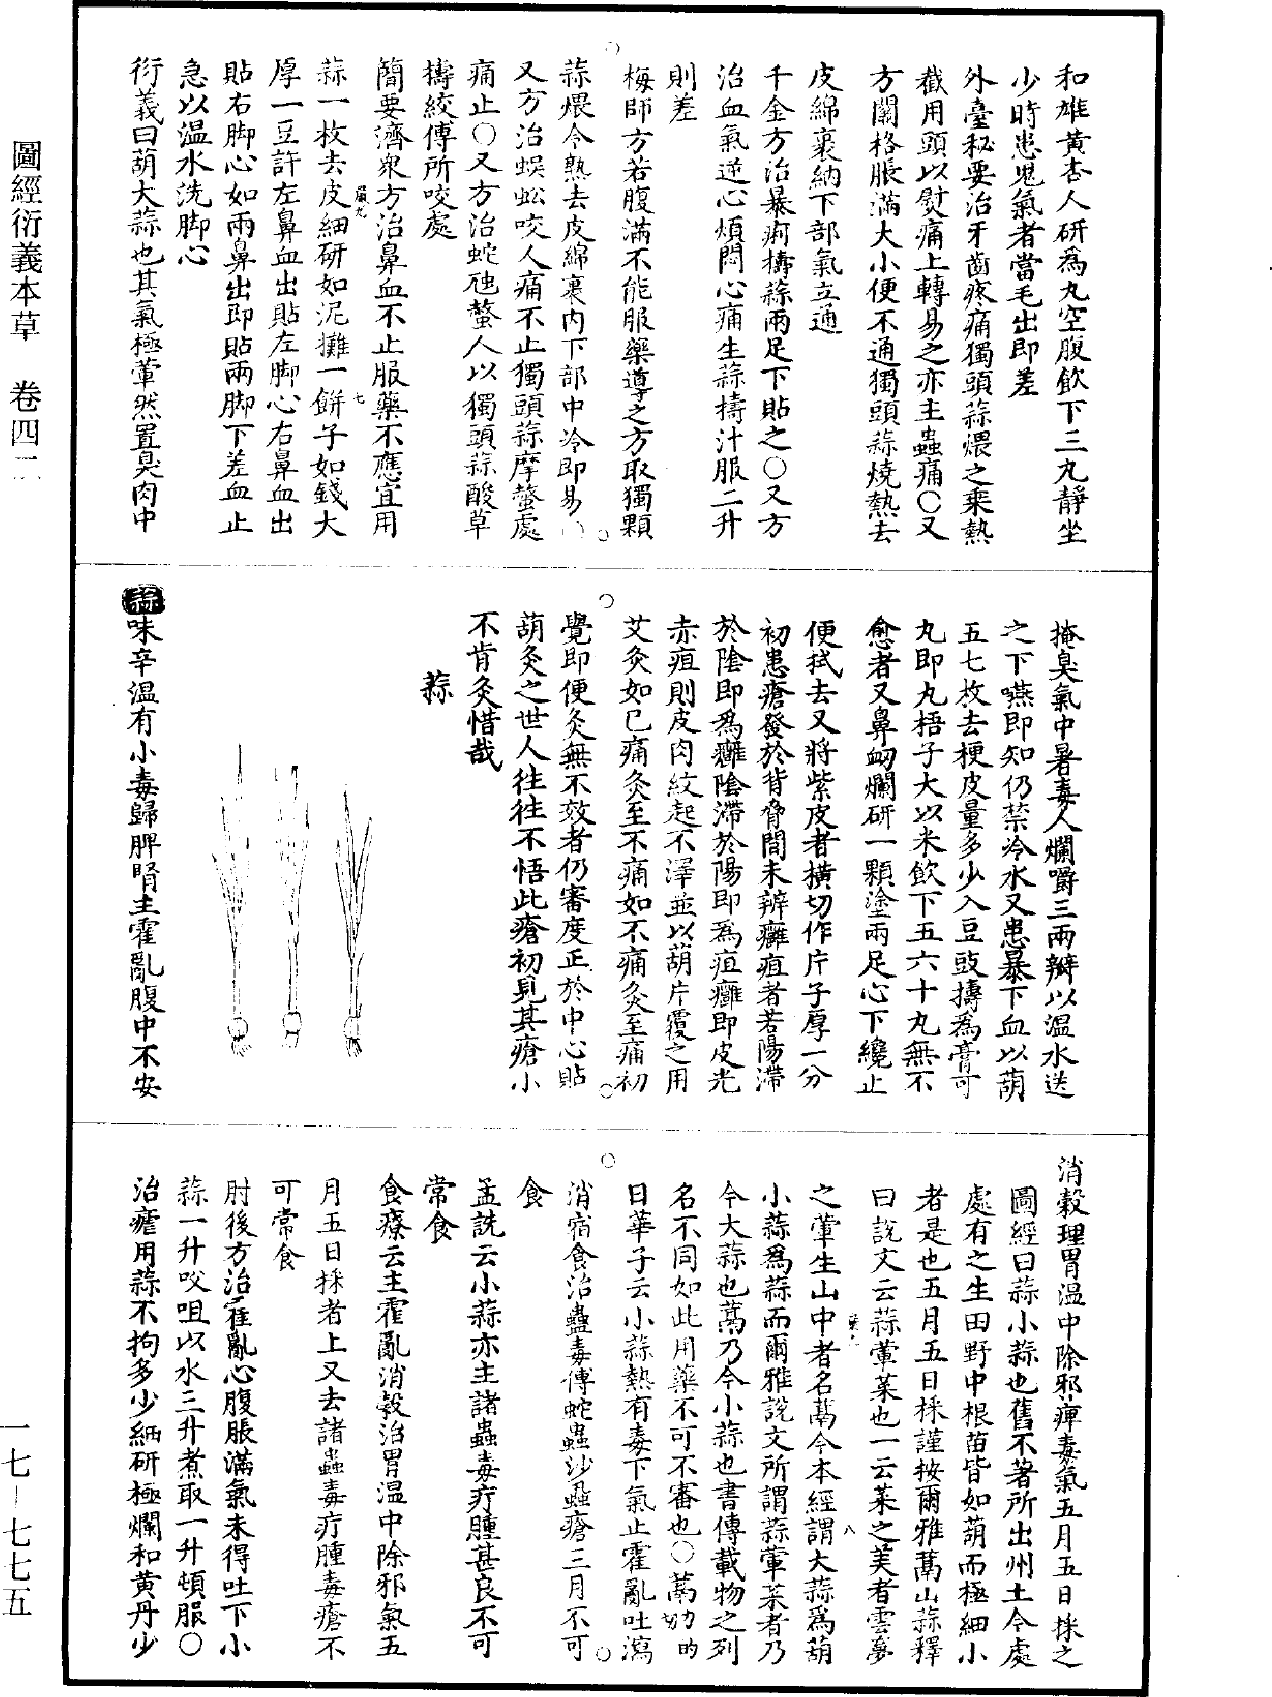 圖經衍義本草 卷四二
和雄黃杏人研爲丸空腹飲下三丸靜坐
少時患鬼氣者當毛出即差
外臺秘要治牙齒疼痛獨頭蒜煨之乘熱
截用頭以熨痛上轉易之亦主蟲痛〇又
方關格脹滿大小便不通獨頭蒜燒熱去
皮綿裹納下部氣立通
千金方治暴痢擣蒜兩足下貼之〇又方
治血氣逆心煩悶心痛生蒜擣汁服二升
則差
梅師方若腹滿不能服藥導之方取獨顆
蒜煨令熟去皮綿裹內下部中冷即易〇
又方治蜈蚣咬人痛不止獨頭蒜摩螫處
痛止〇又方治蛇虺螫人以獨頭蒜酸草
擣絞傅所咬處
簡要濟衆方治鼻血不止服藥不應宜用
蒜一枚去皮細研如泥攤一餅子如錢大
厚一豆許左鼻血出貼左脚心右鼻血出
貼右脚心如兩鼻出即貼兩脚下差血止
急以溫水洗脚心
衍義曰葫大蒜也其氣極葷然置臭肉中
掩臭氣中暑毒人爛嚼三兩瓣以溫水送
之下嚥即知仍禁冷水又患暴下血以葫
五七枚去梗皮量多少入豆豉擣爲膏可
丸即丸梧子大以米飲下五六十丸無不
愈者又鼻衂爛研一顆塗兩足心下纔止
便拭去又將紫皮者橫切作片子厚一分
初患瘡發於背脅間未辨癰疽者若陽滯
於陰即爲癰陰滯於陽即爲疽癰即皮光
赤疽則皮肉紋起不澤並以葫片覆之用
艾灸如已痛灸至不痛如不痛灸至痛初
覺即便灸無不效者仍審度正於中心貼
葫灸之世人往往不悟此瘡初見其瘡小
不肯灸惜哉
蒜
蒜味辛溫有小毒歸脾腎主霍亂腹中不安
消穀理胃溫中除邪痺毒氣五月五日採之
圖經曰蒜小蒜也舊不著所出州土今處
處有之生田野中根苗皆如葫而極細小
者是也五月五日採謹按爾雅蒚山蒜釋
曰說文云蒜葷菜也一云菜之美者雲夢
之葷生山中者名蒚今本經謂大蒜爲葫
小蒜爲蒜而爾雅說文所謂蒜葷菜者乃
今大蒜也蒚乃今小蒜也書傳載物之列
名不同如此用藥不可不審也〇蒚力的切
日華子云小蒜熱有毒下氣止霍亂吐瀉
消宿食治蠱毒傅蛇蟲沙蝨瘡三月不可
食
孟詵云小蒜亦主諸蟲毒疔腫甚良不可
常食
食療云主霍亂消穀治胃溫中除邪氣五
月五日採者上又去諸蟲毒疔腫毒瘡不
可常食
肘後方治霍亂心腹脹滿氣未得吐下小
蒜一升㕮咀以水三升煮取一升頓服〇
治瘧用蒜不拘多少細研極爛和黃丹少
一七－七七五